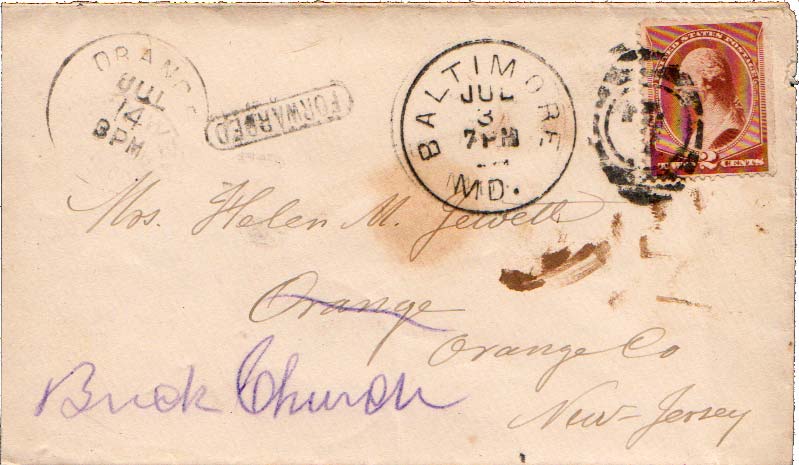 ORANGE
JUL
14
3 PM
FORWARDED
BALTIMORE
JUL
3
7 PM
MD.
UNITED STATES POSTAGE
TWO 2 CENTS
Mrs. Helen M. Jewett
Orange
Orange Co
New-Jersey
Brick Church